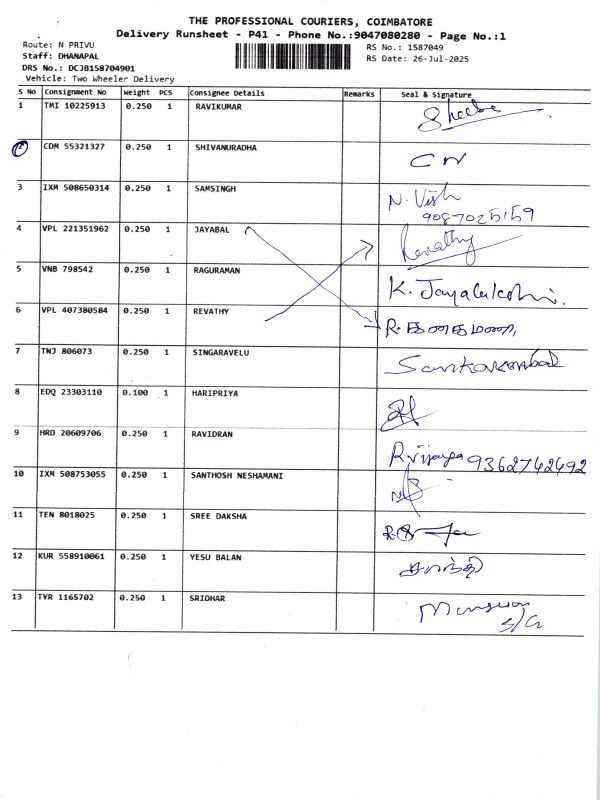 THE PROFESSIONAL COURIERS, COIMBATORE
Delivery Runsheet - P41 - Phone No.:9047080280 - Page No.:1
Route: N PRIVU
RS No.: 1587049
Staff: DHANAPAL
RS Date: 26-Jul-2025
DRS No.: DCJB158704901
Vehicle: Two Wheeler Delivery
S No Consignment No Weight PCS Consignee Details Remarks Seal & Signature
1 TMI 10225913 0.250 1 RAVIKUMAR
2 CDM 55321327 0.250 1 SHIVANURADHA CN
3 IXM 508650314 0.250 1 SAMSINGH N. Vish
9087025159
4 VPL 221351962 0.250 1 JAYABAL Revathy
5 VNB 798542 0.250 1 RAGURAMAN K. Jayalakshmi.
6 VPL 407380584 0.250 1 REVATHY R.
7 TNJ 806073 0.250 1 SINGARAVELU
8 EDQ 23303110 0.100 1 HARIPRIYA
9 HRD 20609706 0.250 1 RAVIDRAN R vijaya 9362742492
10 IXM 508753055 0.250 1 SANTHOSH NESHAMANI
11 TEN 8018025 0.250 1 SREE DAKSHA
12 KUR 558910061 0.250 1 YESU BALAN சாந்தி
13 TYR 1165702 0.250 1 SRIDHAR